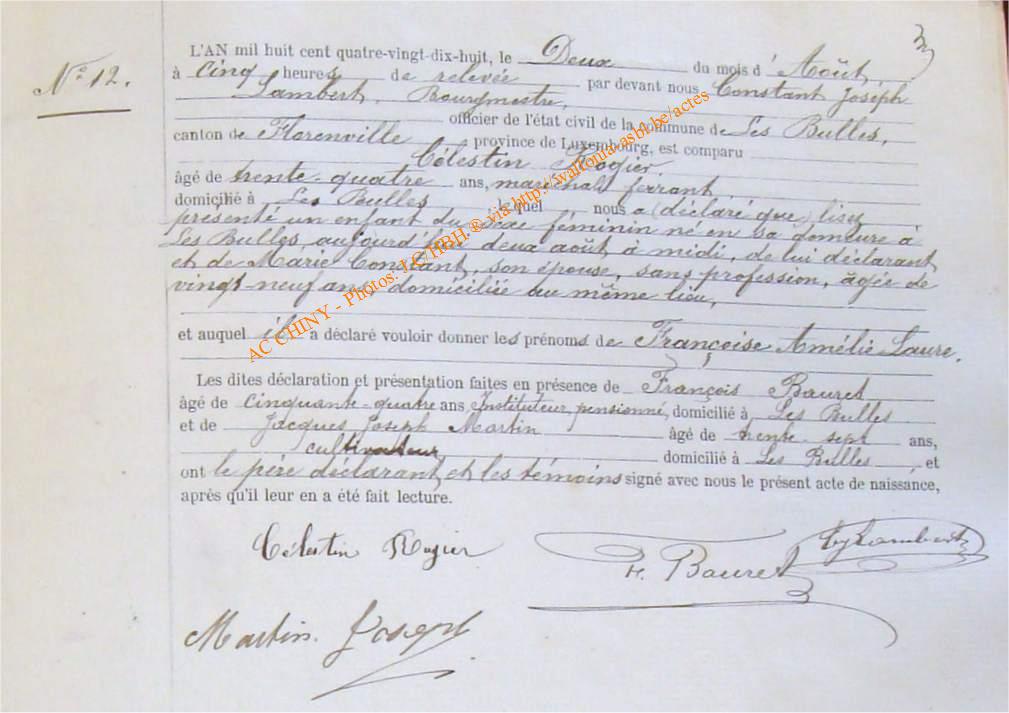 N° 12.
L'AN mil huit cent quatre-vingt-dix-huit, le Deux du mois d'Août,
à cinq heures de relevée par devant nous Constant Joseph
Lambert, Bourgmestre,
officier de l'état civil de la commune de Les Bulles,
canton de Florenville, province de Luxembourg, est comparu
Célestin Rogier,
âgé de trente-quatre ans, maréchal ferrant
domicilié à Les Bulles lequel nous a (déclaré que) lisez
présenté un enfant du sexe féminin né en sa demeure à
Les Bulles, aujourd'hui deux août à midi, de lui déclarant
et de Marie Constant, son épouse, sans profession, âgée de
vingt-neuf ans, domiciliée au même lieu,
et auquel il a déclaré vouloir donner les prénoms de Françoise Amélie Laure.
Les dites déclaration et présentation faites en présence de François Bauret
âgé de cinquante-quatre ans, Instituteur pensionné, domicilié à Les Bulles
et de Jacques Joseph Martin âgé de trente-sept ans,
cultivateur, domicilié à Les Bulles, et
ont le père déclarant et les témoins signé avec nous le présent acte de naissance,
après qu'il leur en a été fait lecture.
Célestin Rogier
F. Bauret
Lambert
Martin Joseph
AC CHINY - Photos: J.C/HBH ® via http://wallonia-asbl.be/actes